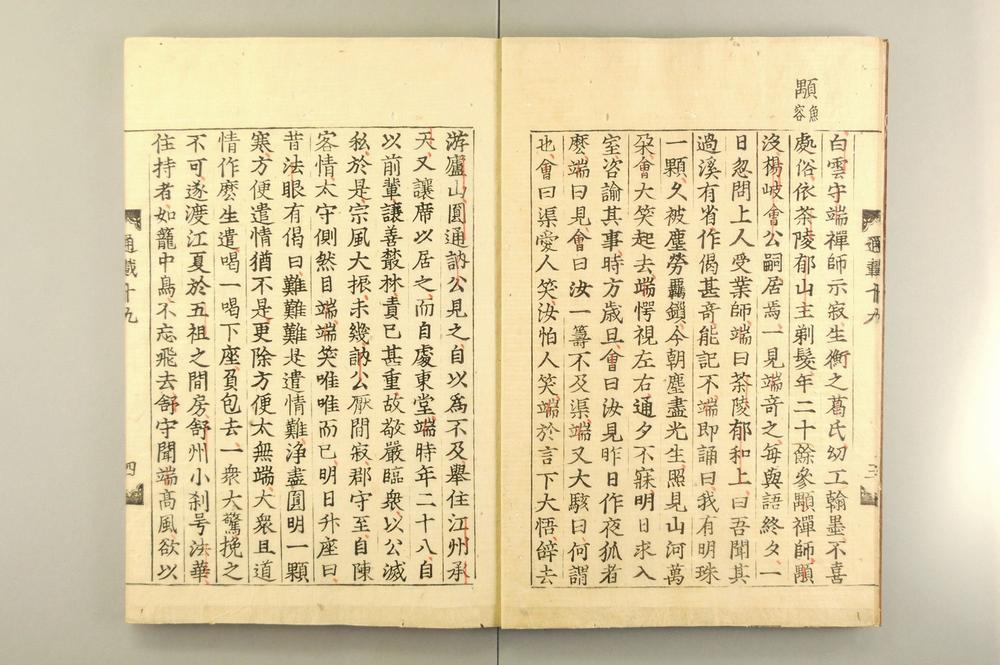 顒
魚容
白雲守端禪師示寂生衡之葛氏幼工翰墨不喜
處俗依茶陵郁山主剃髮年二十餘參顒禪師顒
沒楊岐會公嗣居焉一見端奇之每與語終夕一
日忽問上人受業師端曰茶陵郁和上曰吾聞其
過溪有省作偈甚奇能記不端即誦曰我有明珠
一顆久被塵勞羈鎖今朝塵盡光生照見山河萬
朶會大笑起去端愕視左右通夕不寐明日求入
室咨諭其事時方歲旦會曰汝見昨日作夜狐者
麽端曰見會曰汝一籌不及渠端又大駭曰何謂
也會曰渠愛人笑汝怕人笑端於言下大悟辭去
通載十九
三
游廬山圓通訥公見之自以爲不及舉住江州承
天又讓席以居之而自處東堂端時年二十八自
以前輩讓善叢林責已甚重故敬嚴臨衆以公滅
私於是宗風大振未幾訥公厭間寂郡守至自陳
客情太守惻然目端端笑唯唯而已明日升座曰
昔法眼有偈曰難難難是遣情難淨盡圓明一顆
寒方便遣情猶不是更除方便太無端大衆且道
情作麽生遣喝一喝下座負包去一衆大驚挽之
不可遂渡江夏於五祖之間房舒州小刹号法華
住持者如籠中鳥不忘飛去舒守聞端髙風欲以
通載十九
四